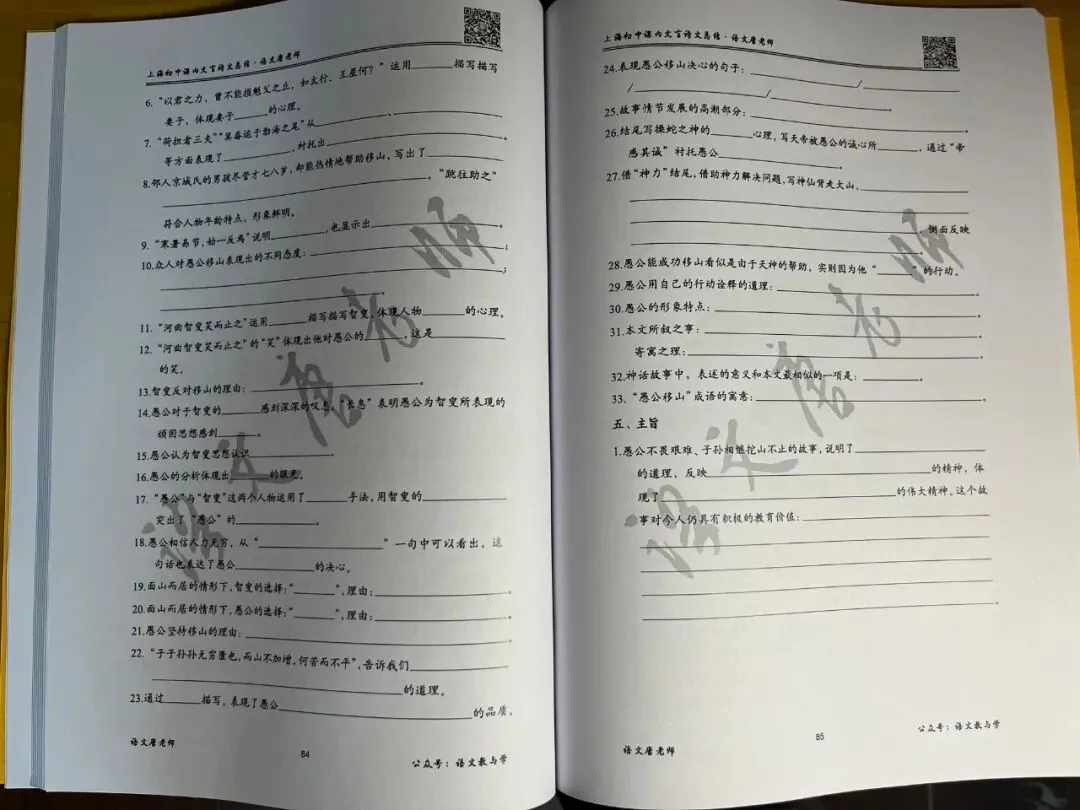 上海初中课内文言诗文总结·语文唐老师
6.“以君之力，曾不能损魁父之丘，如太行、王屋何？”运用______描写描写
妻子，体现妻子______的心理。
7.“荷担者三夫”“箕畚运于渤海之尾”从____________、____________
等方面表现了____________，衬托出____________。
8.邻人京城氏的男孩尽管才七八岁，却能热情地帮助移山，写出了____________
____________。“跳往助之”
符合人物年龄特点，形象鲜明。
9.“寒暑易节，始一反焉”说明________，也显示出____________。
10.众人对愚公移山表现出的不同态度：____________；
____________；
____________。
11.“河曲智叟笑而止之”运用______描写描写智叟，体现人物______的心理。
12.“河曲智叟笑而止之”的“笑”体现出他对愚公的______，这是______
的笑。
13.智叟反对移山的理由：____________。
14.愚公对于智叟的______感到深深的叹息。“长息”表明愚公为智叟所表现的
顽固思想感到______。
15.愚公认为智叟思想认识____________。
16.愚公的分析体现出______的眼光。
17.“愚公”与“智叟”这两个人物运用了______手法，用智叟的____________
突出了“愚公”的____________。
18.愚公相信人力无穷，从“____________”一句中可以看出，这
句话也表达了愚公____________的决心。
19.面山而居的情形下，智叟的选择：“______”，理由：____________。
20.面山而居的情形下，愚公的选择：“______”，理由：____________。
21.愚公坚持移山的理由：____________。
22.“子子孙孙无穷匮也，而山不加增，何苦而不平”，告诉我们____________
____________的道理。
23.通过______描写，表现了愚公____________的品质。
语文唐老师
84
公众号：语文教与学
上海初中课内文言诗文总结·语文唐老师
24.表现愚公移山决心的句子：____________/____________
/____________/____________。
25.故事情节发展的高潮部分：____________。
26.结尾写操蛇之神的______心理，写天帝被愚公的诚心所______，通过“帝
感其诚”衬托愚公____________。
27.借“神力”结尾，借助神力解决问题，写神仙背走大山，____________
____________
____________，侧面反映
____________。
28.愚公能成功移山看似是由于天神的帮助，实则因为他“______”的行动。
29.愚公用自己的行动诠释的道理：____________。
30.愚公的形象特点：____________。
31.本文所叙之事：____________。
寄寓之理：____________。
32.神话故事中，表述的意义和本文最相似的一项是：________。
33.“愚公移山”成语的寓意：____________。
五、主旨
1.愚公不畏艰难、子孙相继挖山不止的故事，说明了____________
的道理，反映____________的精神，体
现了____________的伟大精神。这个故
事对今人仍具有积极的教育价值：____________
____________
____________
____________
____________。
语文唐老师
85
公众号：语文教与学
语文唐老师
语文唐老师